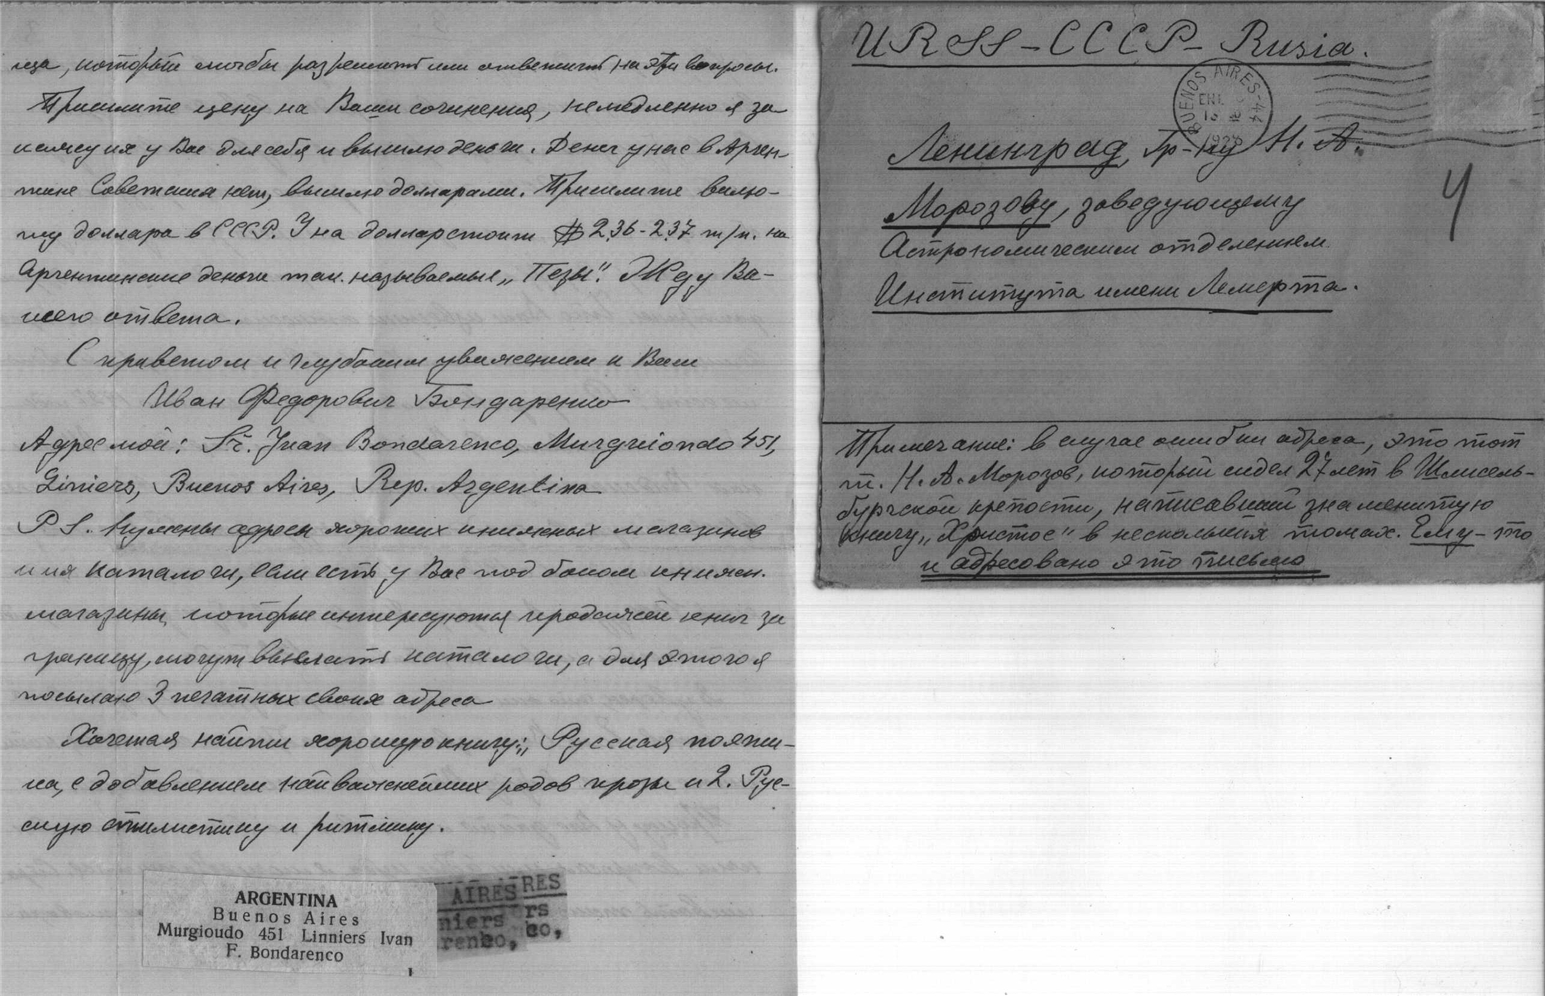 ица, который мог бы разрешить или ответить на эти вопросы.
Пришлите цену на Ваши сочинения, немедленно я за
кажу их у Вас для себя и вышлю деньги. Денег у нас в Арген-
тине Советских нет, вышлю долларами. Пришлите валю-
ту доллара в СССР. У на доллар стоит $ 2,36-2,37 m/n. на
Аргентинские деньги так. называемые „Пезы". Жду Ва-
шего ответа.
С приветом и глубоким уважением к Вам
Иван Федорович Бондаренко
Адрес мой: Sr. Juan Bondarenco, Murguiondo 451,
Liniers, Buenos Aires, Rep. Argentina
P S. Нужны адреса хороших книжных магазинов
и их каталоги, если есть у Вас под боком книжн.
магазины, которые интересуются продажей книг за
границу, могут выслать каталоги, а для этого я
посылаю 3 печатных своих адреса
Хочется найти хорошую книгу: „Русская поэти-
ка, с добавлением наиважнейших родов прозы и 2. Рус-
скую стилистику и ритмику.
ARGENTINA
Buenos Aires
Murgioudo 451 Linniers Ivan
F. Bondarenco
AIRES RES
niers rs
renco, co,
URSS - СССР - Rusia.
BUENOS AIRES-44
ENE
Ленинград, Гр-ну Н. А.
Морозову, заведующему
Астрономическим отделением
Института имени Лемерта.
Ч
Примечание: в случае ошибки адреса, это тот
т. Н. А. Морозов, который сидел 27 лет в Шлисель-
бургской крепости, написавший знаменитую
книгу „Христос" в нескольких томах. Ему-то
и адресовано это письмо